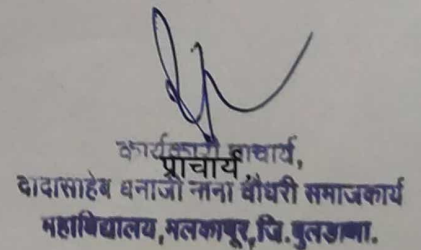 कार्यकारी प्राचार्य,
प्राचार्य,
दादासाहेब धनाजी नाना चौधरी समाजकार्य
महाविद्यालय, मलकापूर, जि. बुलडाणा.